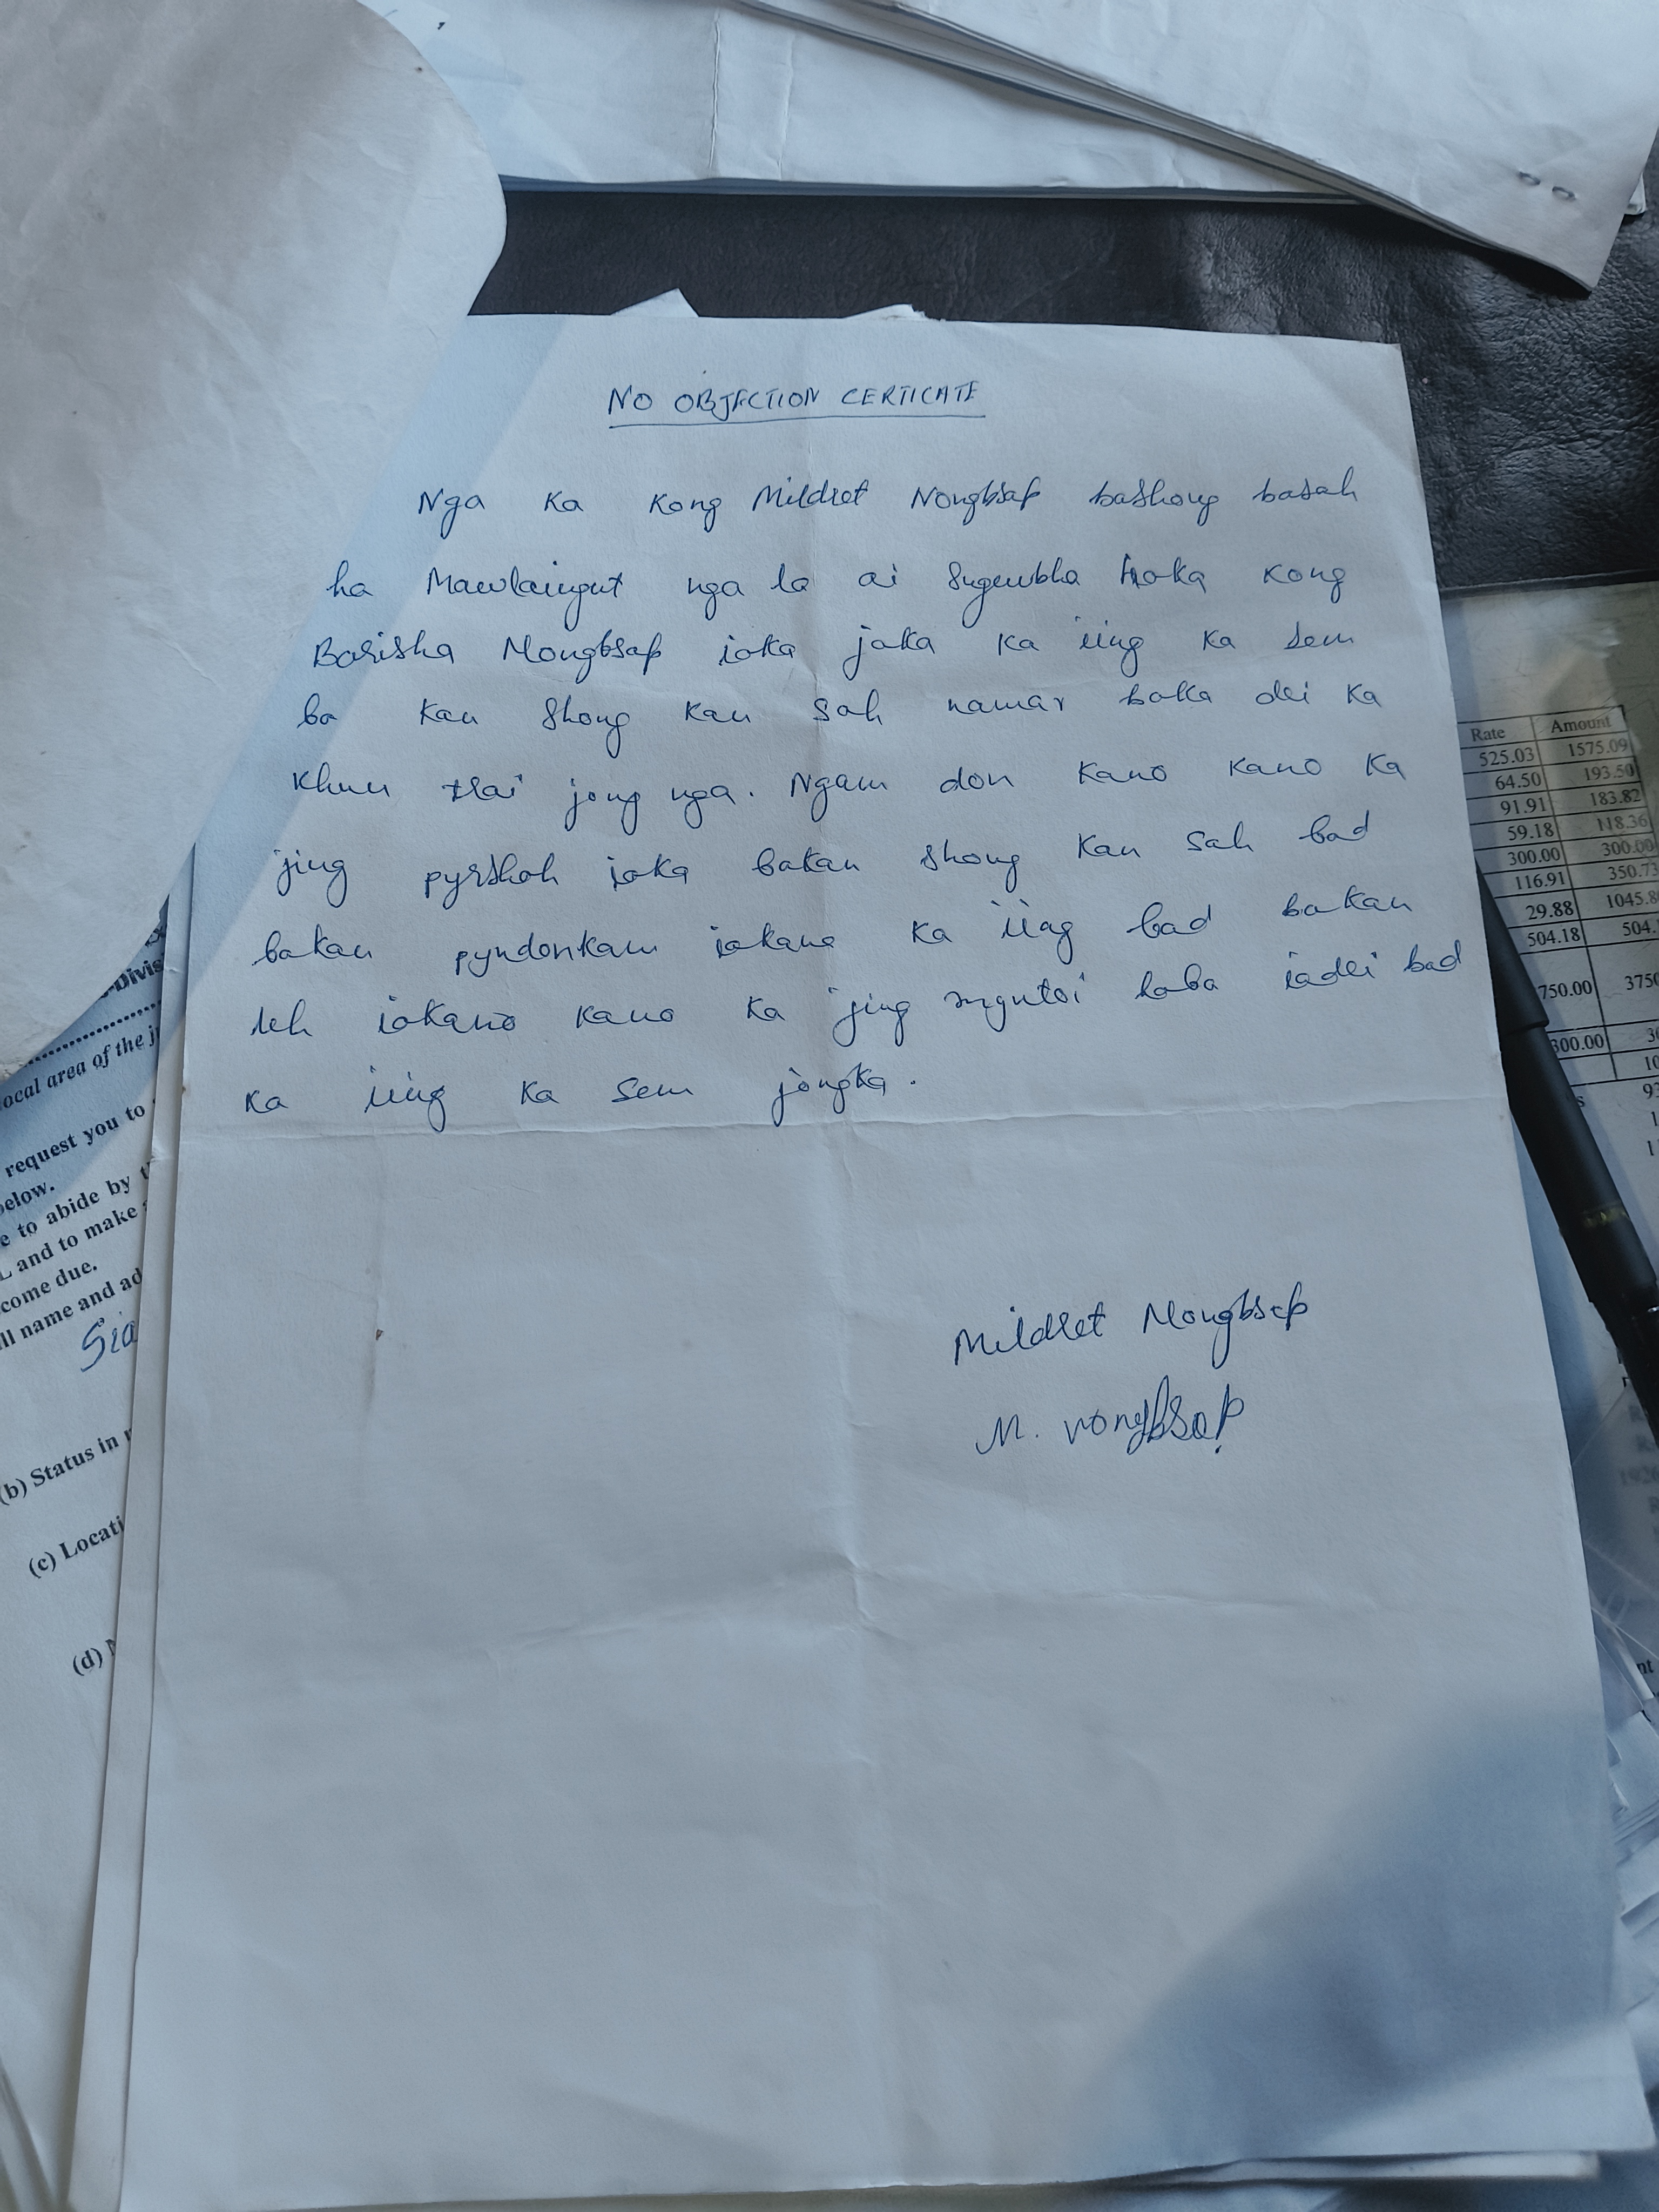 NO OBJECTION CERTICATE
Nga Ka Kong Mildret Nongbsap bashong basah
ha Mawlaingut nga la ai Sngewbha haka Kong
Barisha Nongbsap iaka jaka Ka iing Ka sem
ba Kan Shong Kan Sah namar baka dei Ka
Khun trai jong nga. Ngam don Kano Kano Ka
jing pyrshah iaka bakan shong Kan Sah bad
bakan pyndonkam iakane Ka iing bad bakan
leh iakano Kano Ka jing myntoi haba iadei bad
Ka iing Ka Sem jongka.
Mildret Nongbsap
M. nongbsap
Rate Amount
525.03 1575.09
64.50 193.50
91.91 183.82
59.18 118.36
300.00 300.00
116.91 350.73
29.88 1045.8
504.18 504.
750.00 3750
300.00
ocal area of the
request you to
below.
e to abide by
L and to make
come due.
ll name and ad
(b) Status in
(c) Locati
(d)